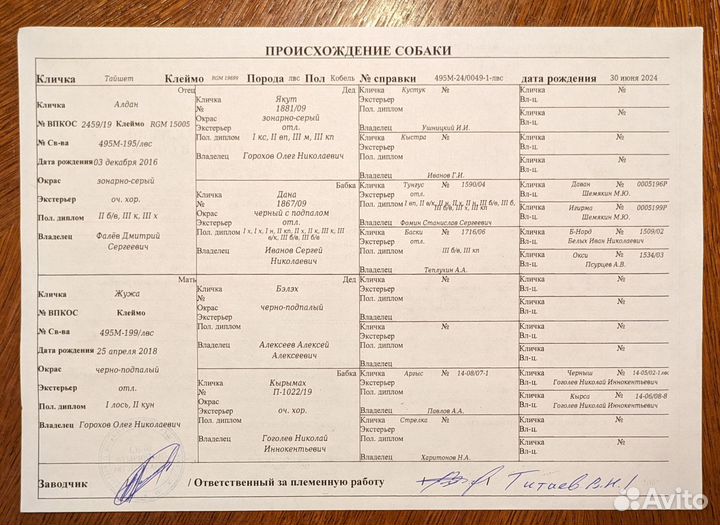 ПРОИСХОЖДЕНИЕ СОБАКИ
Кличка Тайшет Клеймо RGM 19699 Порода лвс Пол Кобель № справки 495М-24/0049-1-лвс дата рождения 30 июня 2024
Отец
Кличка Алдан
№ ВПКОС 2459/19 Клеймо RGM 15005
№ Св-ва 495М-195/лвс
Дата рождения 03 декабря 2016
Окрас зонарно-серый
Экстерьер оч. хор.
Пол. диплом II б/в, III к, III х
Владелец Фалёв Дмитрий
Сергеевич
Мать
Кличка Жужа
№ ВПКОС Клеймо
№ Св-ва 495М-199/лвс
Дата рождения 25 апреля 2018
Окрас черно-подпалый
Экстерьер отл.
Пол. диплом I лось, II кун
Владелец Горохов Олег Николаевич
Дед
Кличка Якут
№ 1881/09
Окрас зонарно-серый
Экстерьер отл.
Пол. диплом I кс, II вп, III м, III кп
Владелец Горохов Олег Николаевич
Бабка
Кличка Дана
№ 1867/09
Окрас черный с подпалом
Экстерьер отл.
Пол. диплом I х, I х, I н, II кп, II х, II к, III к, III
в/к, III б/в, III б/в
Владелец Иванов Сергей
Николаевич
Дед
Кличка Бэлэх
№
Окрас черно-подпалый
Экстерьер
Пол. диплом
Владелец Алексеев Алексей
Алексеевич
Бабка
Кличка Кырымах
№ П-1022/19
Окрас
Экстерьер оч. хор.
Пол. диплом
Владелец Гоголев Николай
Иннокентьевич
Кличка Кустук №
Экстерьер
Пол. диплом
Владелец Ушницкий И.И.
Кличка Кыстра №
Экстерьер
Пол. диплом
Владелец Иванов Г.И.
Кличка Тунгус № 1590/04
Экстерьер отл.
Пол. диплом
Владелец Фомин Станислав Сергеевич
Кличка Баски № 1716/06
Экстерьер отл.
Пол. диплом III б/в, III кп
Владелец Теплухин А.А.
Кличка №
Экстерьер
Пол. диплом
Владелец
Кличка №
Экстерьер
Пол. диплом
Владелец
Кличка Аргыс № 14-08/07-1
Экстерьер
Пол. диплом
Владелец Павлов А.А.
Кличка Стрелка №
Экстерьер
Пол. диплом
Владелец Харитонов Н.А.
Кличка №
Вл-ц.
Кличка №
Вл-ц.
Кличка №
Вл-ц.
Кличка №
Вл-ц.
Кличка Даван № 0005196Р
Вл-ц. Шемякин М.Ю.
Кличка Игирма № 0005199Р
Вл-ц. Шемякин М.Ю.
Кличка Б-Норд № 1509/02
Вл-ц. Белых Иван Николаевич
Кличка Окси № 1534/03
Вл-ц. Псурцев А.В.
Кличка №
Вл-ц.
Кличка №
Вл-ц.
Кличка №
Вл-ц.
Кличка №
Вл-ц.
Кличка Черныш № 14-05/02-1лвс
Вл-ц. Гоголев Николай Иннокентьевич
Кличка Кырса № 14-06/08-8
Вл-ц. Гоголев Николай Иннокентьевич
Кличка №
Вл-ц.
Кличка №
Вл-ц.
Заводчик / Ответственный за племенную работу Титаев В.Н./
Avito